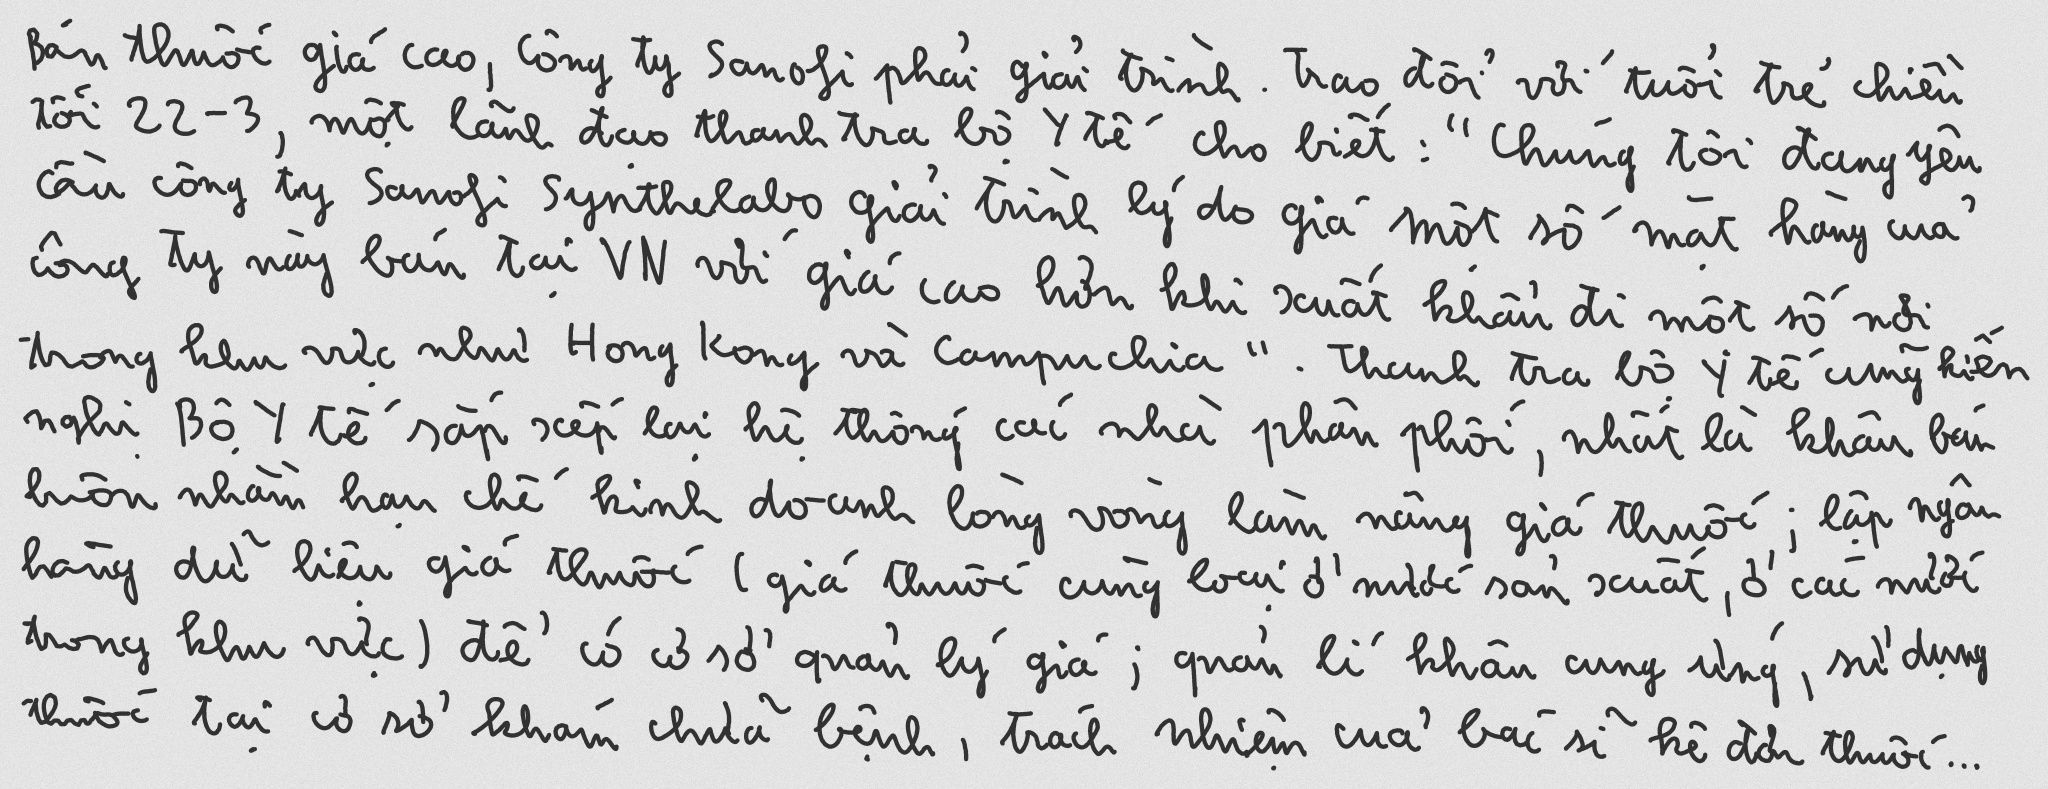 Bán thuốc giá cao, Công ty Sanofi phải giải trình. Trao đổi với tuổi trẻ chiều
tối 22-3, một lãnh đạo thanh tra bộ Y tế cho biết : "Chúng tôi đang yêu
cầu công ty Sanofi Synthelabo giải trình lý do giá một số mặt hàng của
công ty này bán tại VN với giá cao hơn khi xuất khẩu đi một số nơi
trong khu vực như Hong Kong và Campuchia". Thanh tra bộ Y tế cũng kiến
nghị Bộ Y tế sắp xếp lại hệ thống các nhà phân phối, nhất là khâu bán
buôn nhằm hạn chế kinh doanh lòng vòng làm nâng giá thuốc; lập ngân
hàng dữ liệu giá thuốc (giá thuốc cùng loại ở nước sản xuất, ở các nước
trong khu vực) để có cơ sở quản lý giá; quản lí khâu cung ứng, sử dụng
thuốc tại cơ sở khám chữa bệnh, trách nhiệm của bác sĩ kê đơn thuốc...